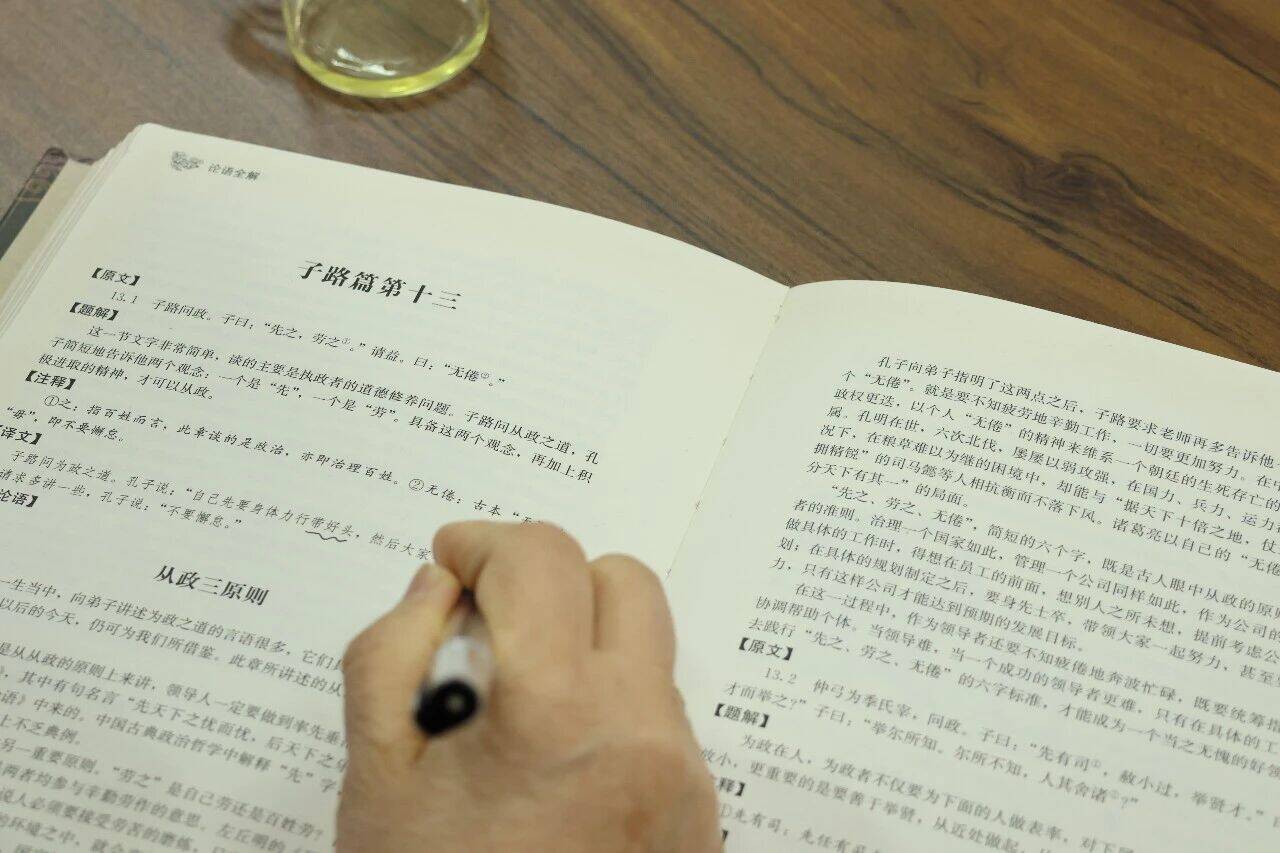 论语全解
子路篇第十三
【原文】
13.1 子路问政。子曰：“先之，劳之①。”请益。曰：“无倦②。”
【题解】
这一节文字非常简单，谈的主要是执政者的道德修养问题。子路问从政之道，孔
子简短地告诉他两个观念：一个是“先”，一个是“劳”。具备这两个观念，再加上积
极进取的精神，才可以从政。
【注释】
①之：指百姓而言，此章谈的是政治，亦即治理百姓。②无倦：古本“无
“毋”，即不要懈怠。
译文】
子路问为政之道。孔子说：“自己先要身体力行带好头，然后大家
请求多讲一些，孔子说：“不要懈怠。”
论语】
从政三原则
一生当中，向弟子讲述为政之道的言语很多，它们
以后的今天，仍可为我们所借鉴。此章所讲述的从
是从从政的原则上来讲，领导人一定要做到率先垂
，其中有句名言“先天下之忧而忧，后天下之
语》中来的。中国古典政治哲学中解释“先”字
上不乏典例。
另一重要原则。“劳之”是自己劳还是百姓劳？
两者均参与辛勤劳作的意思。左丘明的
说人必须要接受劳苦的磨练，
的环境之中，就会
孔子向弟子指明了这两点之后，子路要求老师再多告诉他
个“无倦”。就是要不知疲劳地辛勤工作，一切要更加努力。在中
政权更迭，以个人“无倦”的精神来维系一个朝廷的生死存亡的
属。孔明在世，六次北伐，屡屡以弱攻强，在国力、兵力、运力
况下，在粮草难以为继的困境中，却能与“据天下十倍之地，仗
拥精锐”的司马懿等人相抗衡而不落下风。诸葛亮以自己的“无倦
分天下有其一”的局面。
“先之、劳之、无倦”，简短的六个字，既是古人眼中从政的原则
者的准则。治理一个国家如此，管理一个公司同样如此，作为公司的
做具体的工作时，得想在员工的前面，想别人之所未想，提前考虑公
划；在具体的规划制定之后，要身先士卒，带领大家一起努力，甚至
力，只有这样公司才能达到预期的发展目标。
在这一过程中，作为领导者还要不知疲倦地奔波忙碌，既要统筹
协调帮助个体。当领导难，当一个成功的领导者更难，只有在具体的工
去践行“先之、劳之、无倦”的六字标准，才能成为一个当之无愧的好领
【原文】
13.2 仲弓为季氏宰，问政。子曰：“先有司①，赦小过，举贤才。”
才而举之？”子曰：“举尔所知。尔所不知，人其舍诸②？”
【题解】
为政在人，为政者不仅要为下面的人做表率，对下
放小，更重要的是要善于举贤，从近处做起，
释】
①先有司：先任有